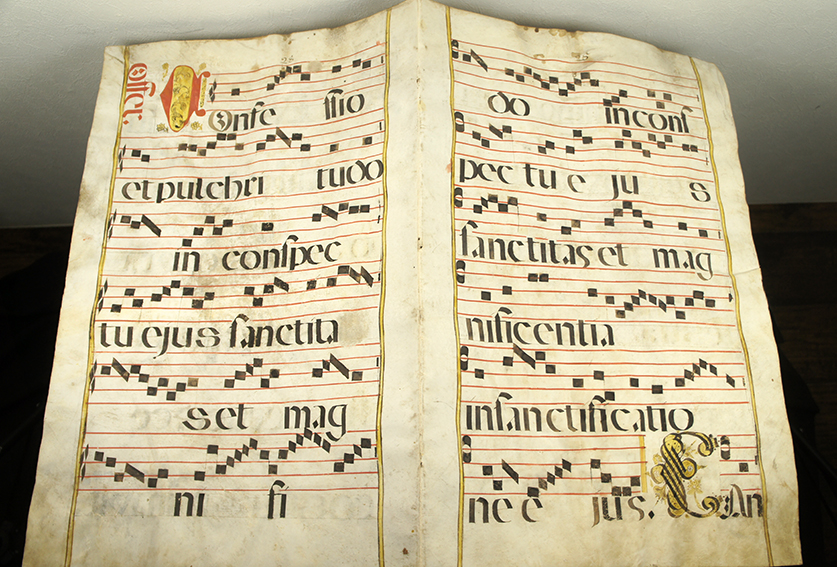 Offer.
COnfe ſſio
et pulchri tudo
in conſpec
tu ejus ſanctita
s et mag
ni fi
do in conſ
pec tu e ju s
ſanctitas et mag
nificentia
in ſanctificatio
ne e jus. CAn